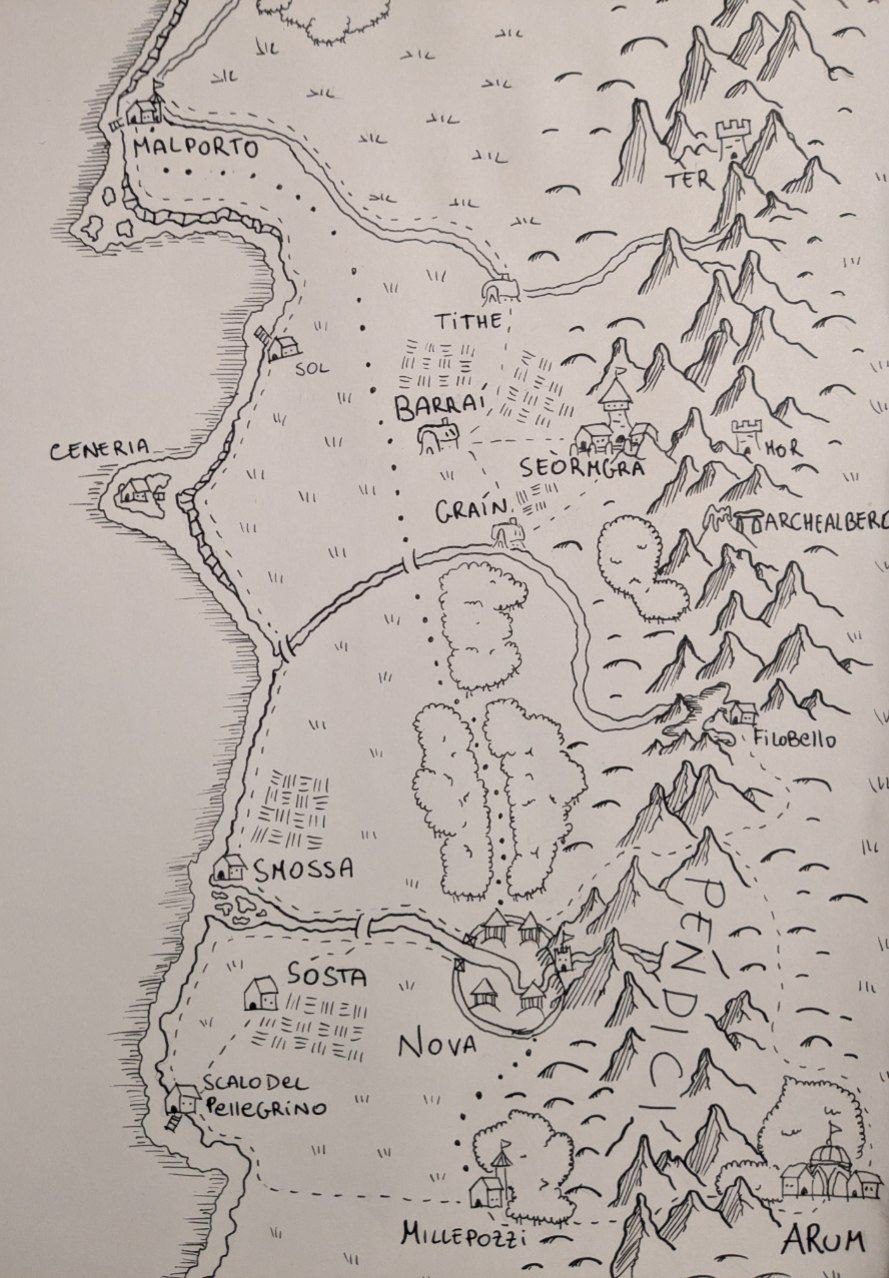 MALPORTO
TER
TITHE
SOL
BARRAÍ
CENERIA
SEÒRMGRA
MOR
GRAÍN
ARCHEALBERO
FILOBELLO
SMOSSA
PENDICI
SOSTA
NOVA
SCALO DEL
PELLEGRINO
MILLEPOZZI
ARUM